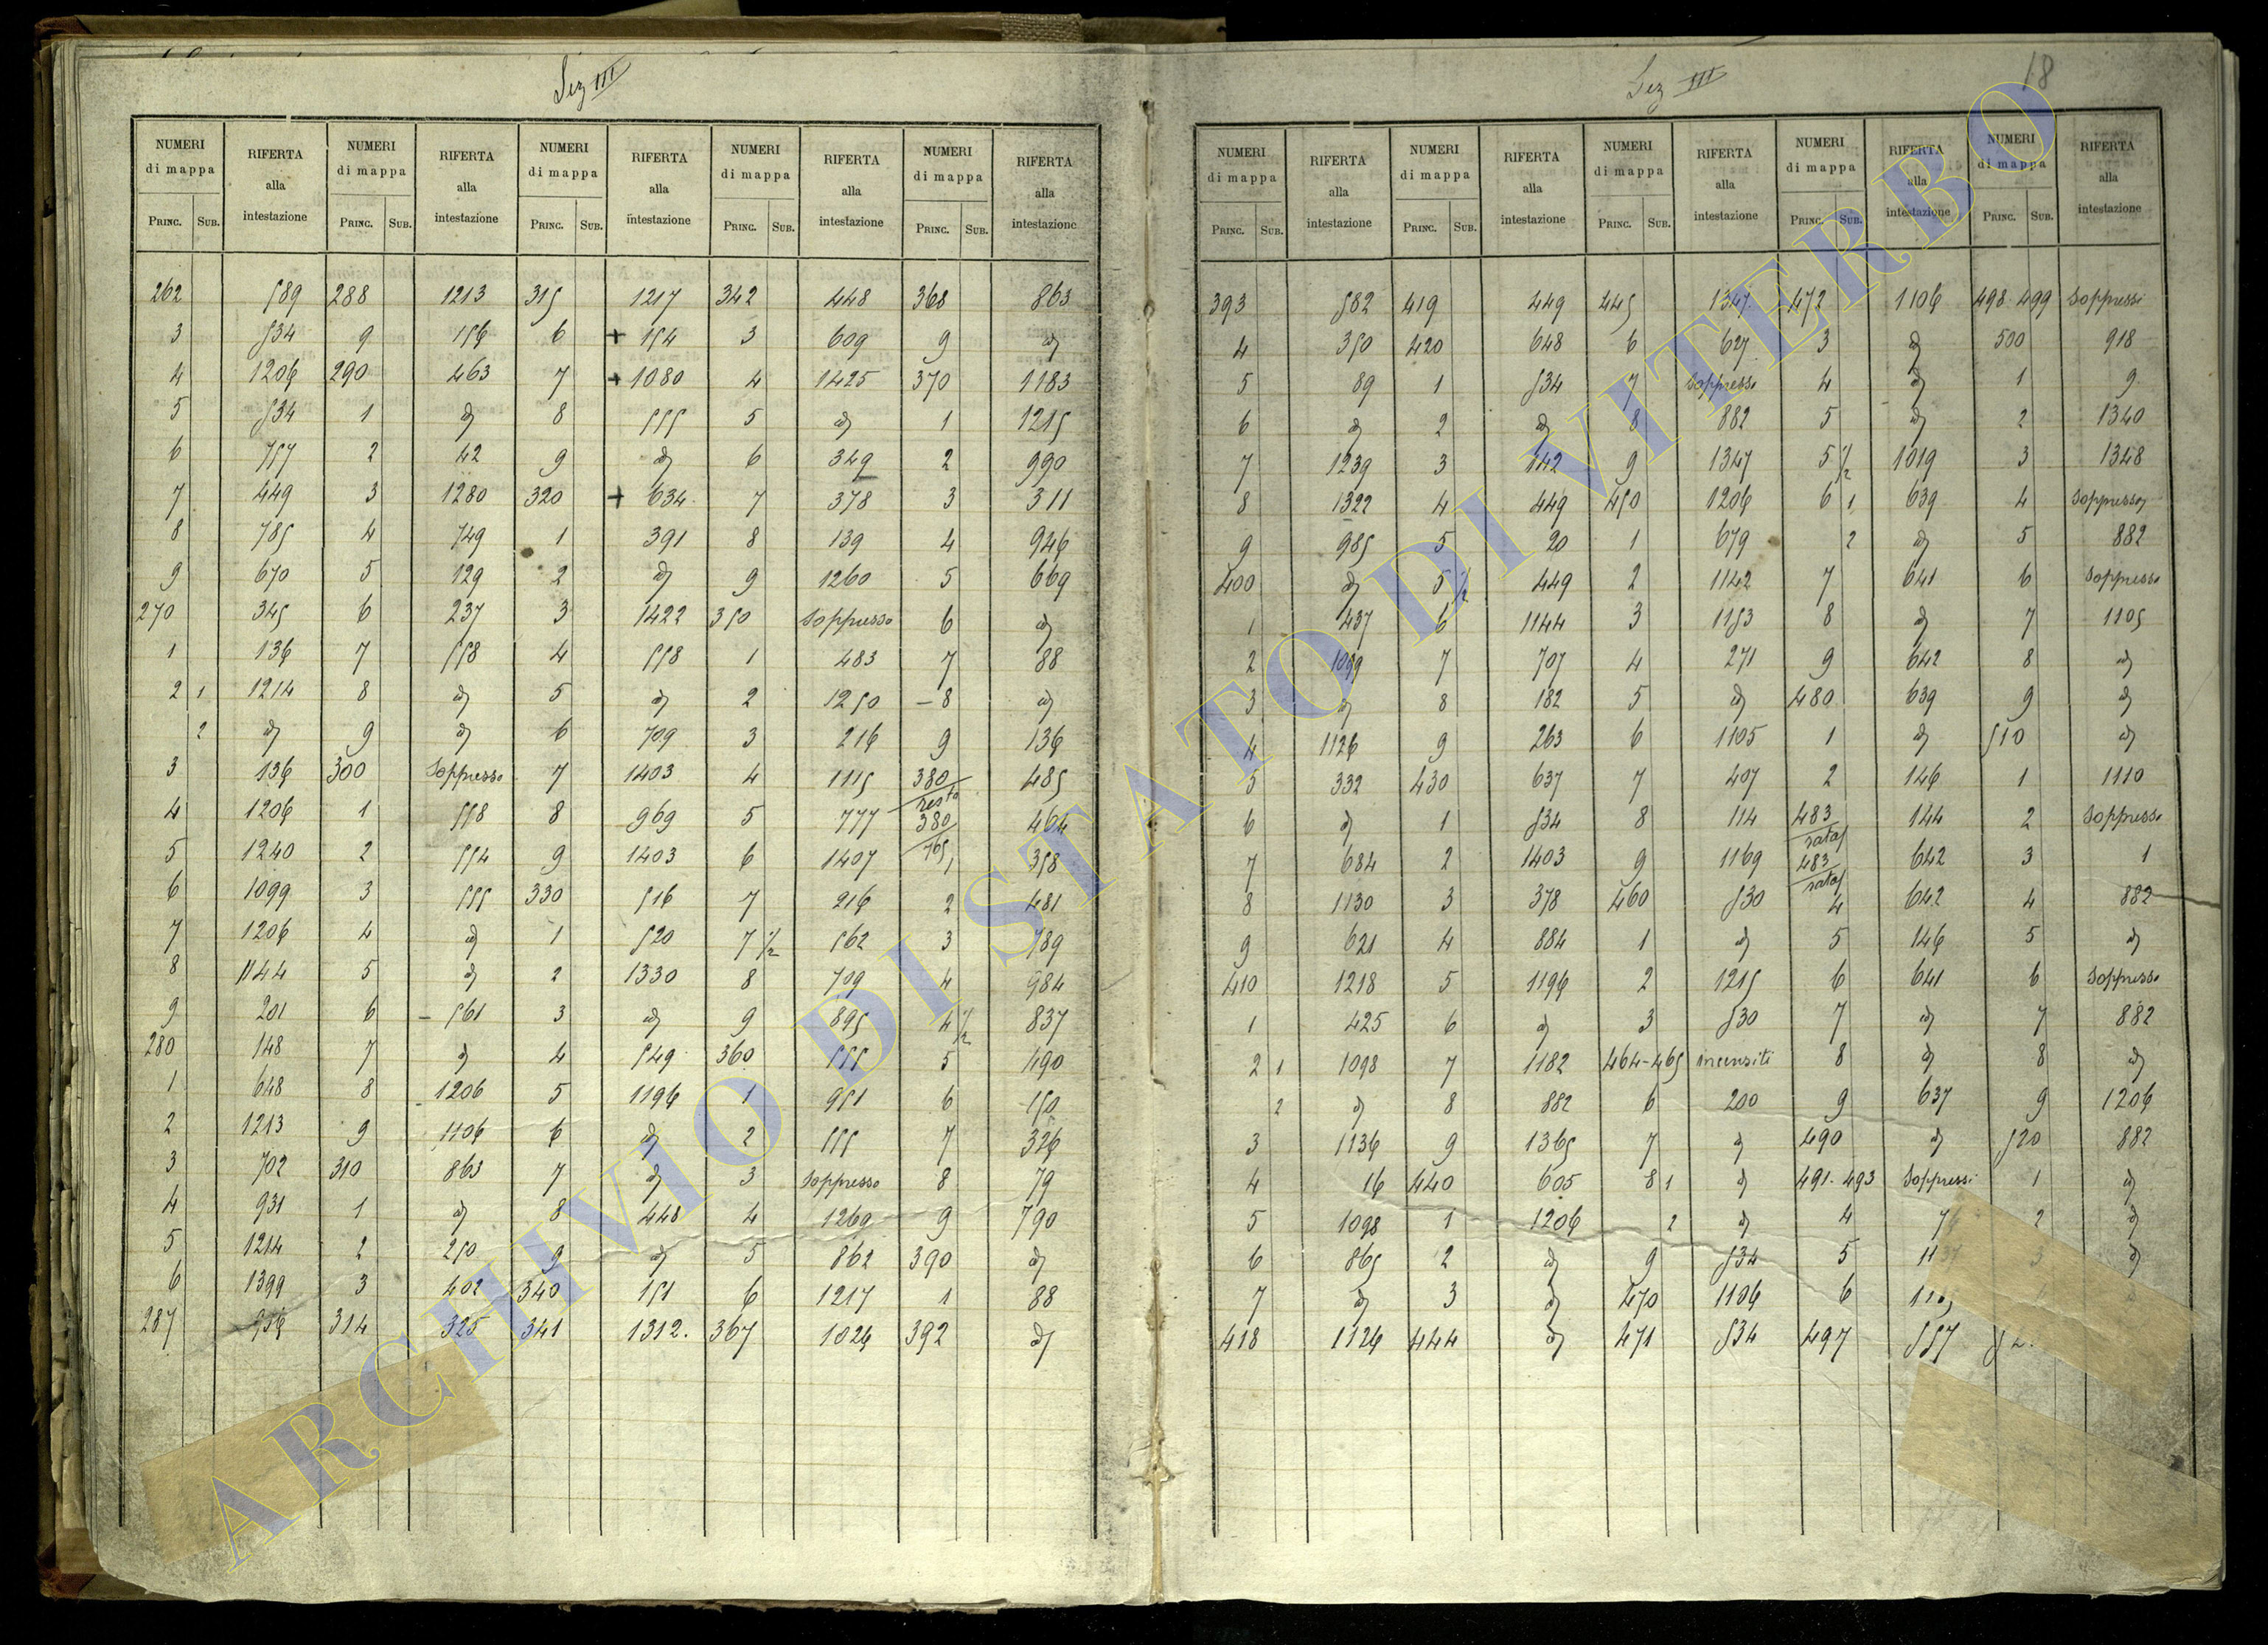 Sez III
NUMERI di mappa RIFERTA alla intestazione NUMERI di mappa RIFERTA alla intestazione NUMERI di mappa RIFERTA alla intestazione NUMERI di mappa RIFERTA alla intestazione NUMERI di mappa RIFERTA alla intestazione
PRINC. SUB. PRINC. SUB. PRINC. SUB. PRINC. SUB. PRINC. SUB.
262 589 288 1213 315 1217 342 448 368 863
3 534 9 156 6 + 154 3 609 9 d
4 1206 290 463 7 + 1080 4 1425 370 1183
5 534 1 d 8 555 5 d 1 1215
6 757 2 42 9 d 6 349 2 990
7 449 3 1280 320 + 634 7 378 3 311
8 785 4 749 1 391 8 139 4 946
9 670 5 129 2 d 9 1260 5 669
270 345 6 237 3 1422 350 soppresso 6 d
1 136 7 558 4 558 1 483 7 88
2 1 1214 8 d 5 d 2 1250 8 d
2 d 9 d 6 709 3 216 9 136
3 136 300 soppresso 7 1403 4 1115 380/resto 485
4 1206 1 558 8 969 5 777 380/765 464
5 1240 2 554 9 1403 6 1407 1 358
6 1099 3 555 330 516 7 216 2 481
7 1206 4 d 1 520 7 1/2 562 3 789
8 1144 5 d 2 1330 8 709 4 984
9 201 6 561 3 d 9 895 4 1/2 837
280 148 7 d 4 549 360 555 5 490
1 648 8 1206 5 1196 1 951 6 150
2 1213 9 1106 6 d 2 555 7 326
3 702 310 863 7 d 3 soppresso 8 79
4 931 1 d 8 448 4 1269 9 790
5 1214 2 250 9 d 5 862 390 d
6 1399 3 402 340 151 6 1217 1 88
287 314 325 341 1312. 367 1024 392 d
Sez III
18
NUMERI di mappa RIFERTA alla intestazione NUMERI di mappa RIFERTA alla intestazione NUMERI di mappa RIFERTA alla intestazione NUMERI di mappa RIFERTA alla intestazione NUMERI di mappa RIFERTA alla intestazione
PRINC. SUB. PRINC. SUB. PRINC. SUB. PRINC. SUB. PRINC. SUB.
393 582 419 449 445 1347 472 1106 498-499 soppressi
4 350 420 648 6 627 3 d 500 918
5 89 1 534 7 soppresso 4 d 1 9
6 d 2 d 8 882 5 d 2 1340
7 1239 3 142 9 1347 5 1/2 1019 3 1348
8 1322 4 449 450 1206 6 1 639 4 soppresso
9 985 5 20 1 679 2 d 5 882
400 d 5 1/2 449 2 1142 7 641 6 soppresso
1 437 6 1144 3 1153 8 d 7 1105
2 1099 7 707 4 271 9 642 8 d
3 d 8 182 5 d 480 639 9 d
4 1126 9 263 6 1105 1 d 510 d
5 332 430 637 7 407 2 146 1 1110
6 d 1 534 8 114 483/rata 144 2 soppresso
7 684 2 1403 9 1169 483/rata 642 3 1
8 1130 3 378 460 530 4 642 4 882
9 621 4 884 1 d 5 146 5 d
410 1218 5 1196 2 1215 6 641 6 soppresso
1 425 6 d 3 530 7 d 7 882
2 1 1098 7 1182 464-465 incensiti 8 d 8 d
2 d 8 882 6 200 9 637 9 1206
3 1136 9 1365 7 d 490 d 520 882
4 16 440 605 8 1 d 491-493 soppressi 1 d
5 1098 1 1206 2 d 4 2 d
6 865 2 d 9 534 5 3 d
7 d 3 d 470 1106 6
418 1126 444 d 471 534 497 557
ARCHIVIO DI STATO DI VITERBO